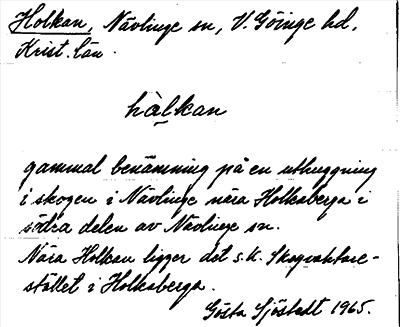 Holkan, Nävlinge sn, V. Göinge hd,
Krist. län.
hålkan
gammal benämning på en uthuggning
i skogen i Nävlinge nära Holkaberga i
södra delen av Nävlinge sn.
Nära Holkan ligger det s.k. Skogvaktare-
stället i Holkaberga.
Gösta Sjöstedt 1965.